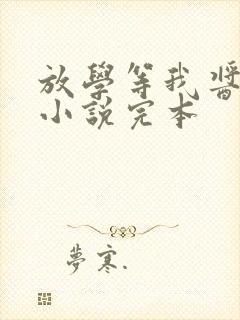 放學等我醬
小說完本
夢寒.